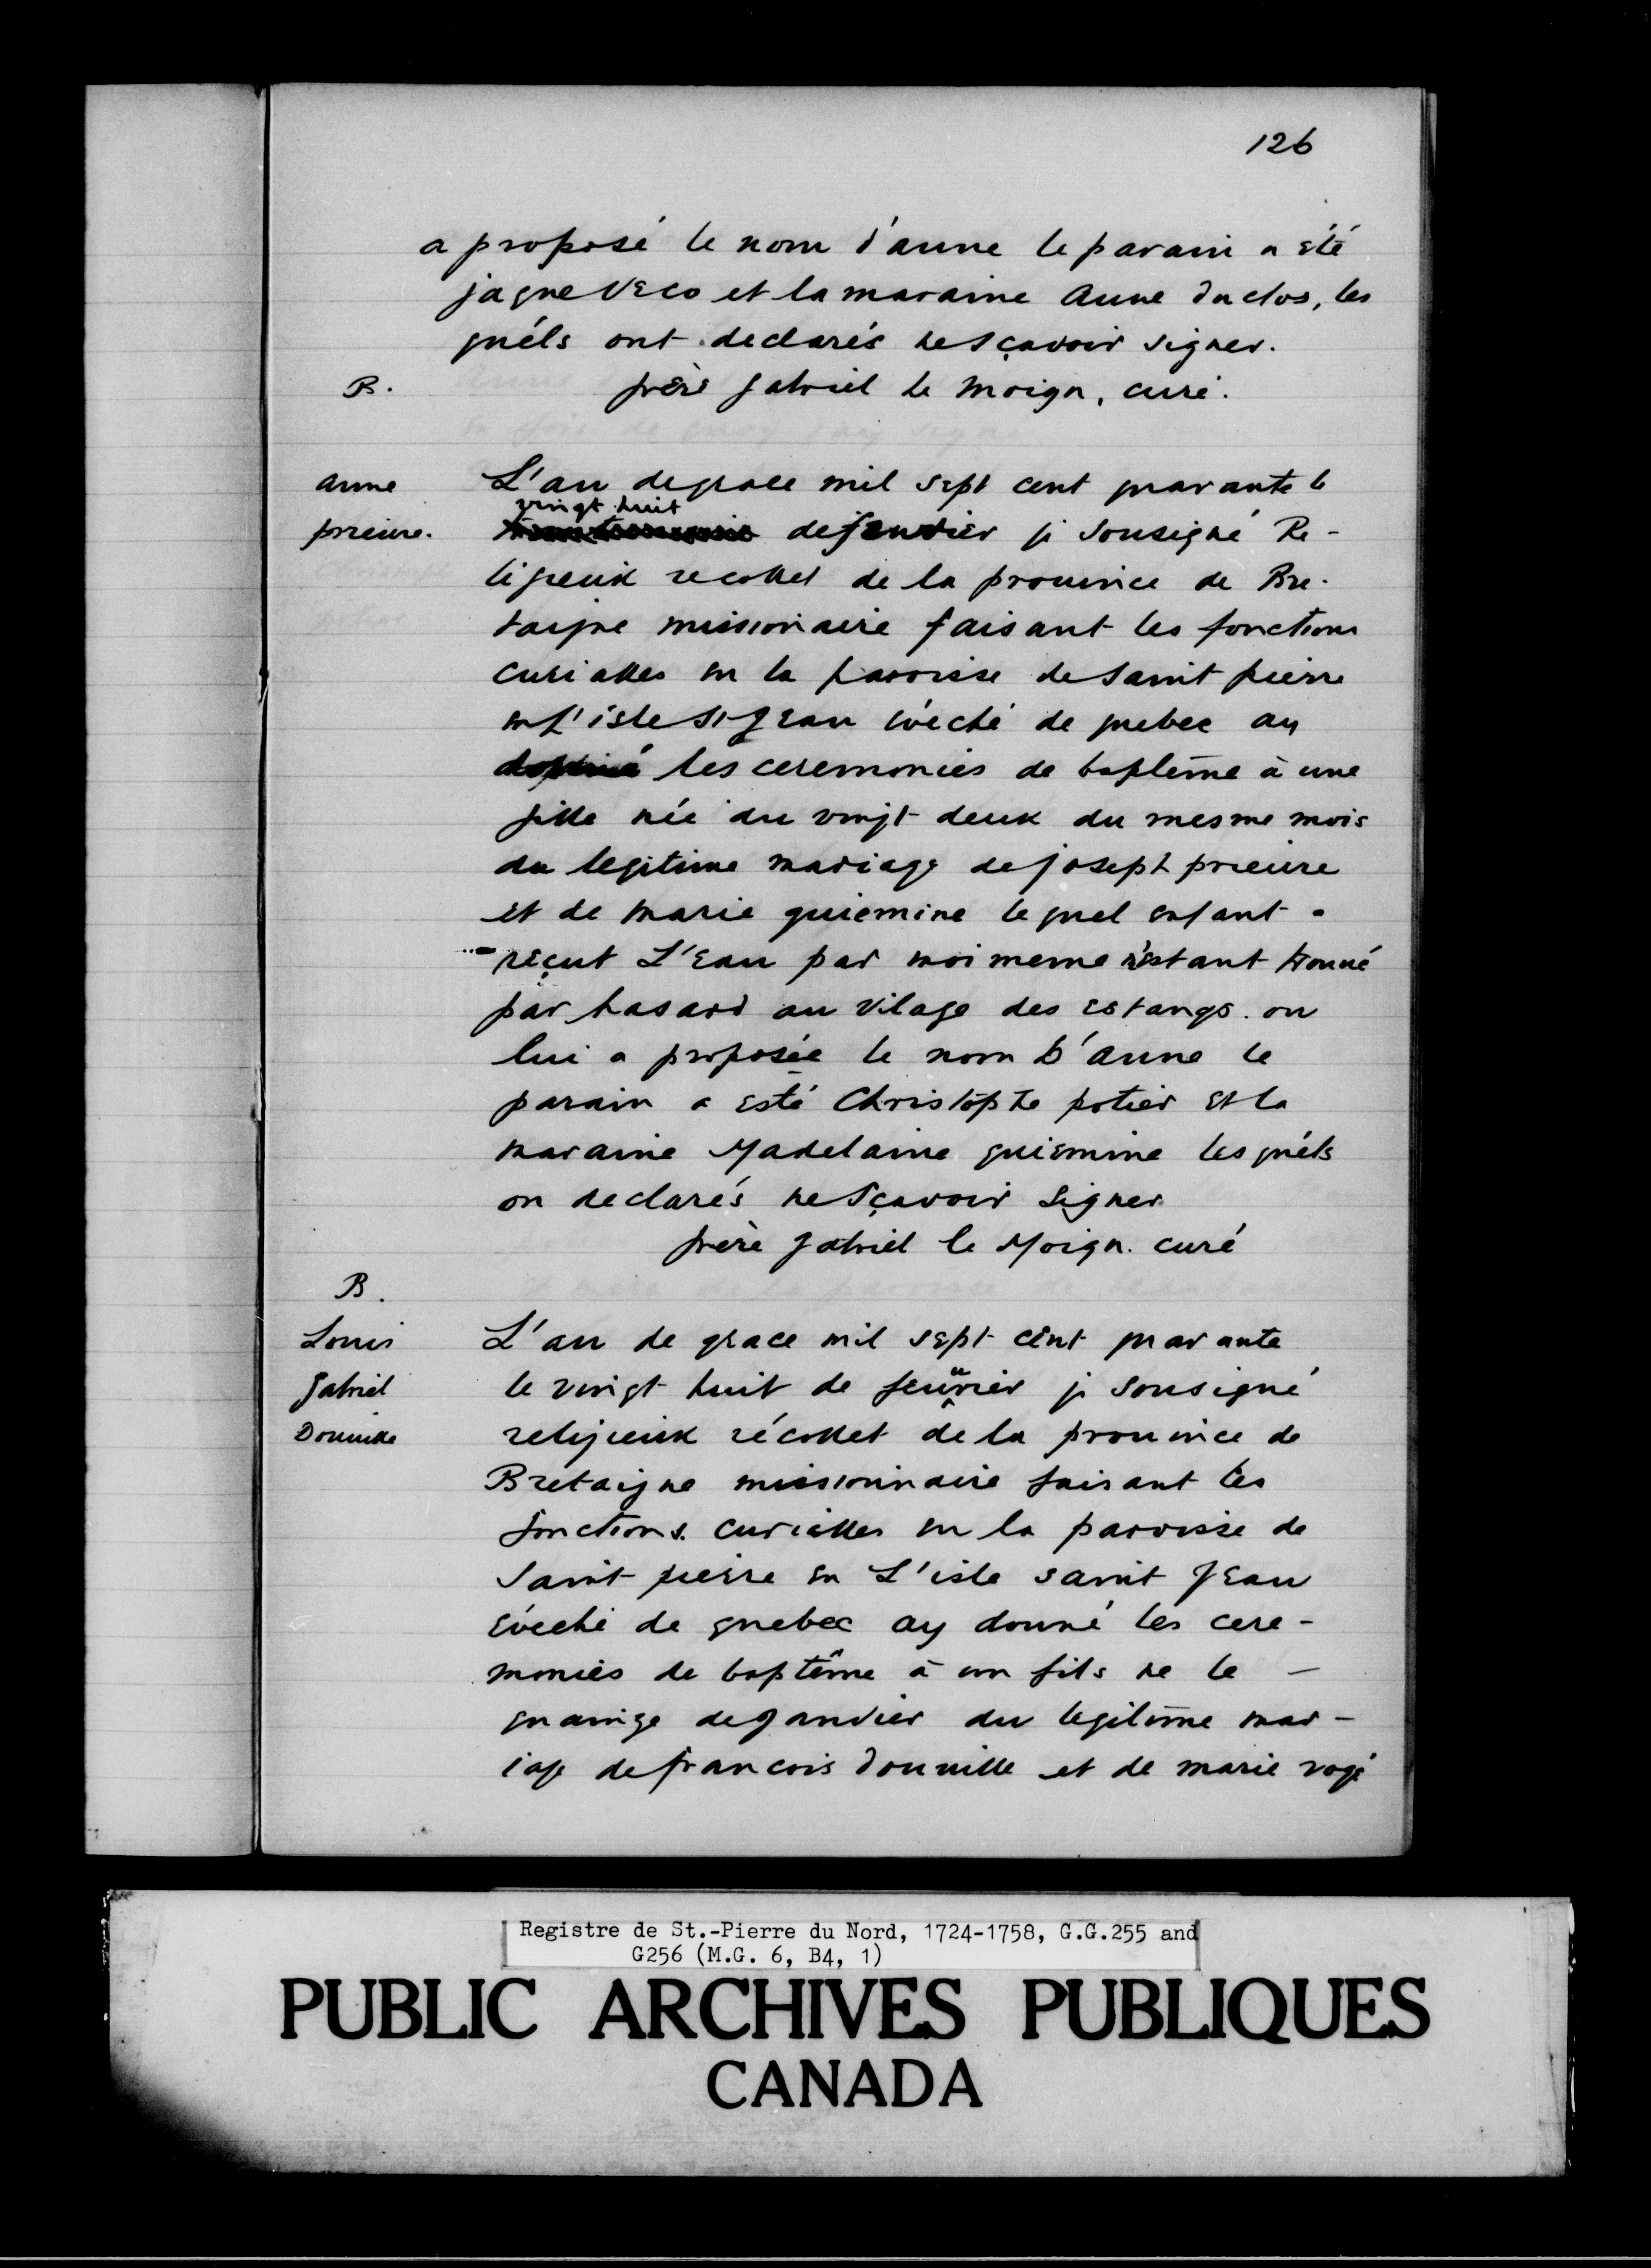 126
a proposé le nom d'anne le parain a été
jaque Veco et la maraine Anne duclos, les
quéls ont declarés ne sçavoir signer.
B. frère gabriel le moign, curé.
anne L'an de grace mil sept cent quarante le
vingt huit
prieure. de janvier je sousigné Re-
ligieux recollet de la prouince de Bre-
taigne missionaire faisant les fonctions
curialles en la paroisse de saint pierre
en L'isle St Jean évêché de quebec ay
les ceremonies de baplême à une
fille née du vingt deux du mesme mois
du legitime mariage de josepht prieure
et de marie quiemine le quel enfant a
reçut L'Eau par moi meme m'estant trouvé
par hasard au vilage des estangs. on
lui a proposée le nom D'anne le
parain a esté Christophe potier et la
maraine Madelaine quiemine lesquéls
on declarés ne sçavoir signer.
frère gabriel le Moign. curé
B.
Louis L'an de grace mil sept cênt quarante
Gabriel le vingt huit de feuurier je sousigné
Douuille religieux récollet de la prouince de
Bretaigne missionnaire faisant les
fonctions curialles en la paroisse de
saint pierre en L'isle saint Jean
évêché de quebec ay donné les cere-
monies de baptême à un fils ne le -
quainze de janvier du legitime mar-
iage de francois douuille et de marie rogé
Registre de St.-Pierre du Nord, 1724-1758, G.G.255 and
G256 (M.G. 6, B4, 1)
PUBLIC ARCHIVES PUBLIQUES
CANADA